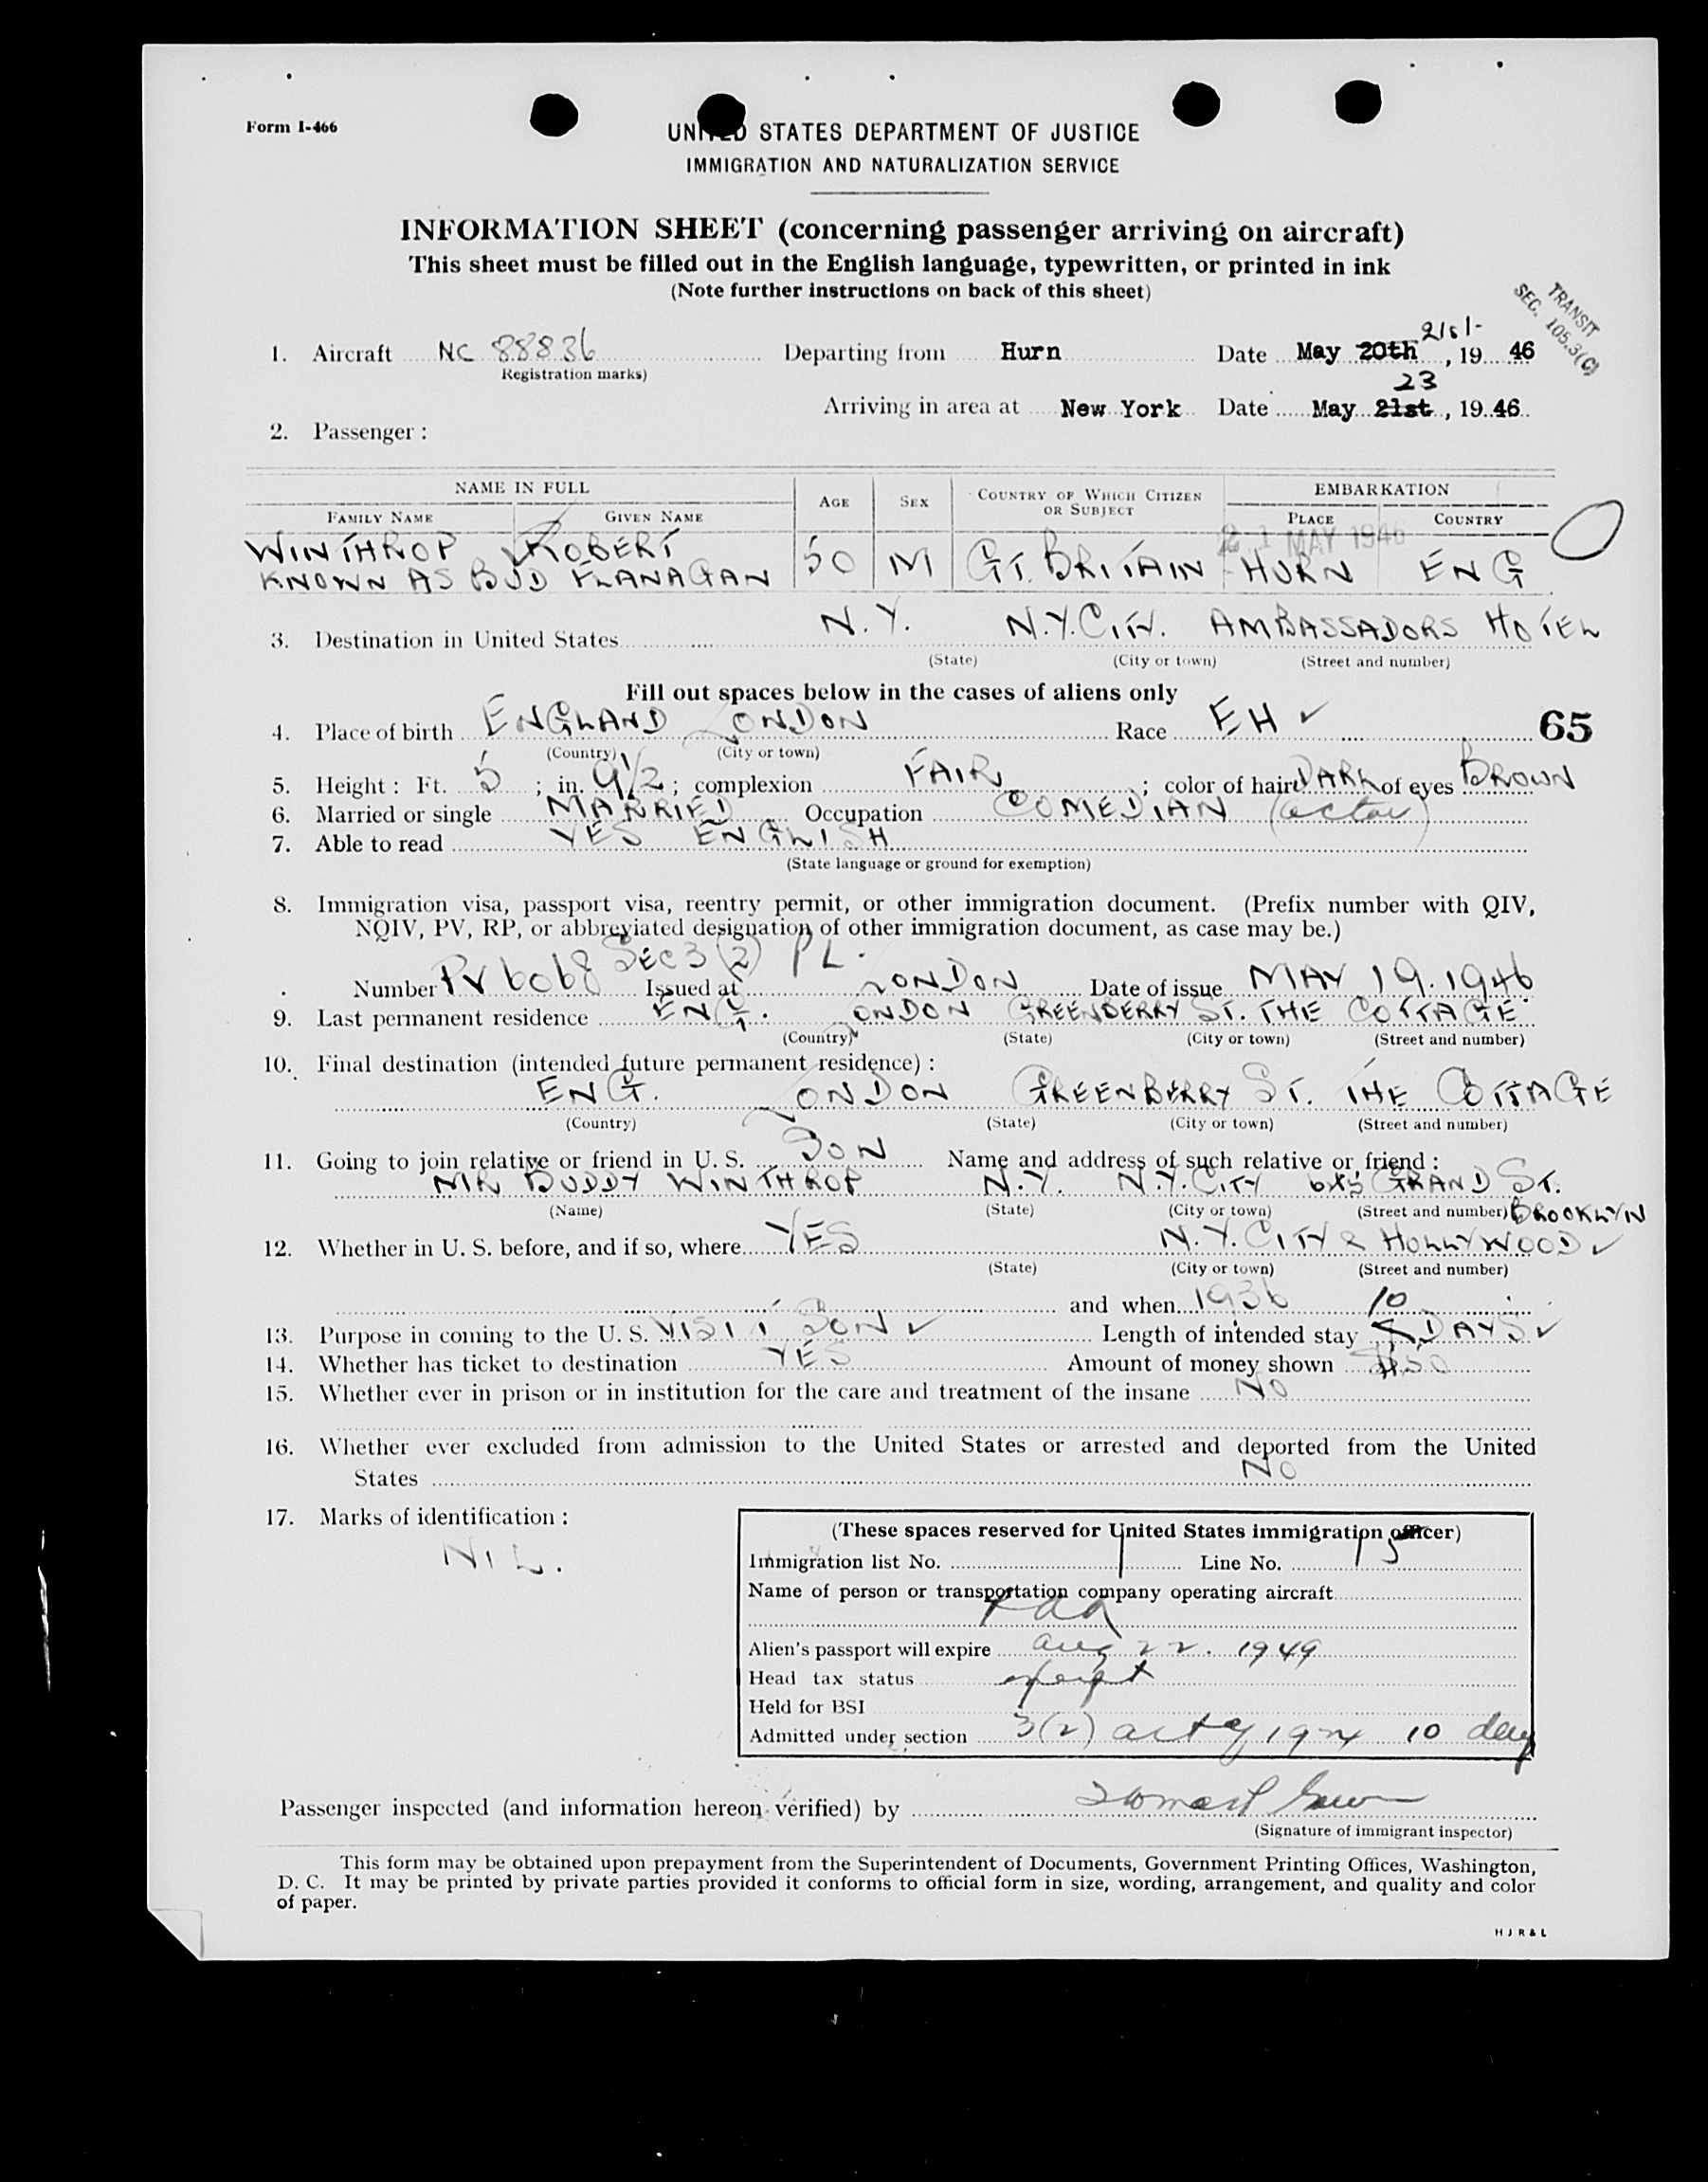 Form I-466
UNITED STATES DEPARTMENT OF JUSTICE
IMMIGRATION AND NATURALIZATION SERVICE
INFORMATION SHEET (concerning passenger arriving on aircraft)
This sheet must be filled out in the English language, typewritten, or printed in ink
(Note further instructions on back of this sheet)
TRANSIT
SEC. 105.3(C)
21st
1. Aircraft NC 88836 Departing from Hurn Date May 20th, 19 46
Registration marks)
23
Arriving in area at New York Date May 21st, 19 46
2. Passenger :
NAME IN FULL AGE SEX COUNTRY OF WHICH CITIZEN OR SUBJECT EMBARKATION
FAMILY NAME GIVEN NAME PLACE COUNTRY
21 MAY 1946
WINTHROP ROBERT 50 M GT. BRITAIN HURN ENG
KNOWN AS BUD FLANAGAN
3. Destination in United States N.Y. N.Y.CITY. AMBASSADORS HOTEL
(State) (City or town) (Street and number)
Fill out spaces below in the cases of aliens only
4. Place of birth ENGLAND LONDON Race EH ✓ 65
(Country) (City or town)
5. Height : Ft. 5 ; in. 9 1/2 ; complexion FAIR ; color of hair DARK of eyes BROWN
6. Married or single MARRIED Occupation COMEDIAN (actor)
7. Able to read YES ENGLISH
(State language or ground for exemption)
8. Immigration visa, passport visa, reentry permit, or other immigration document. (Prefix number with QIV,
NQIV, PV, RP, or abbreviated designation of other immigration document, as case may be.)
SEC 3 (2) PL.
Number PV 6068 Issued at LONDON Date of issue MAY 19. 1946
9. Last permanent residence ENG. LONDON GREENBERRY ST. THE COTTAGE
(Country) (State) (City or town) (Street and number)
10. Final destination (intended future permanent residence) :
ENG. LONDON GREENBERRY ST. THE COTTAGE
(Country) (State) (City or town) (Street and number)
11. Going to join relative or friend in U. S. SON Name and address of such relative or friend :
MR BUDDY WINTHROP N.Y. N.Y.CITY GRAND ST.
(Name) (State) (City or town) (Street and number) BROOKLYN
12. Whether in U. S. before, and if so, where YES N.Y. CITY & HOLLYWOOD ✓
(State) (City or town) (Street and number)
and when 1936 10
13. Purpose in coming to the U. S. VISIT SON ✓ Length of intended stay DAYS ✓
14. Whether has ticket to destination YES Amount of money shown $50
15. Whether ever in prison or in institution for the care and treatment of the insane NO
16. Whether ever excluded from admission to the United States or arrested and deported from the United
States NO
17. Marks of identification :
NIL.
(These spaces reserved for United States immigration officer)
Immigration list No. 1 Line No. 15
Name of person or transportation company operating aircraft
PAA
Alien's passport will expire Aug 22. 1949
Head tax status exempt
Held for BSI
Admitted under section 3(2) act of 1924 10 days
Passenger inspected (and information hereon verified) by
(Signature of immigrant inspector)
This form may be obtained upon prepayment from the Superintendent of Documents, Government Printing Offices, Washington,
D. C. It may be printed by private parties provided it conforms to official form in size, wording, arrangement, and quality and color
of paper.
H J R & L